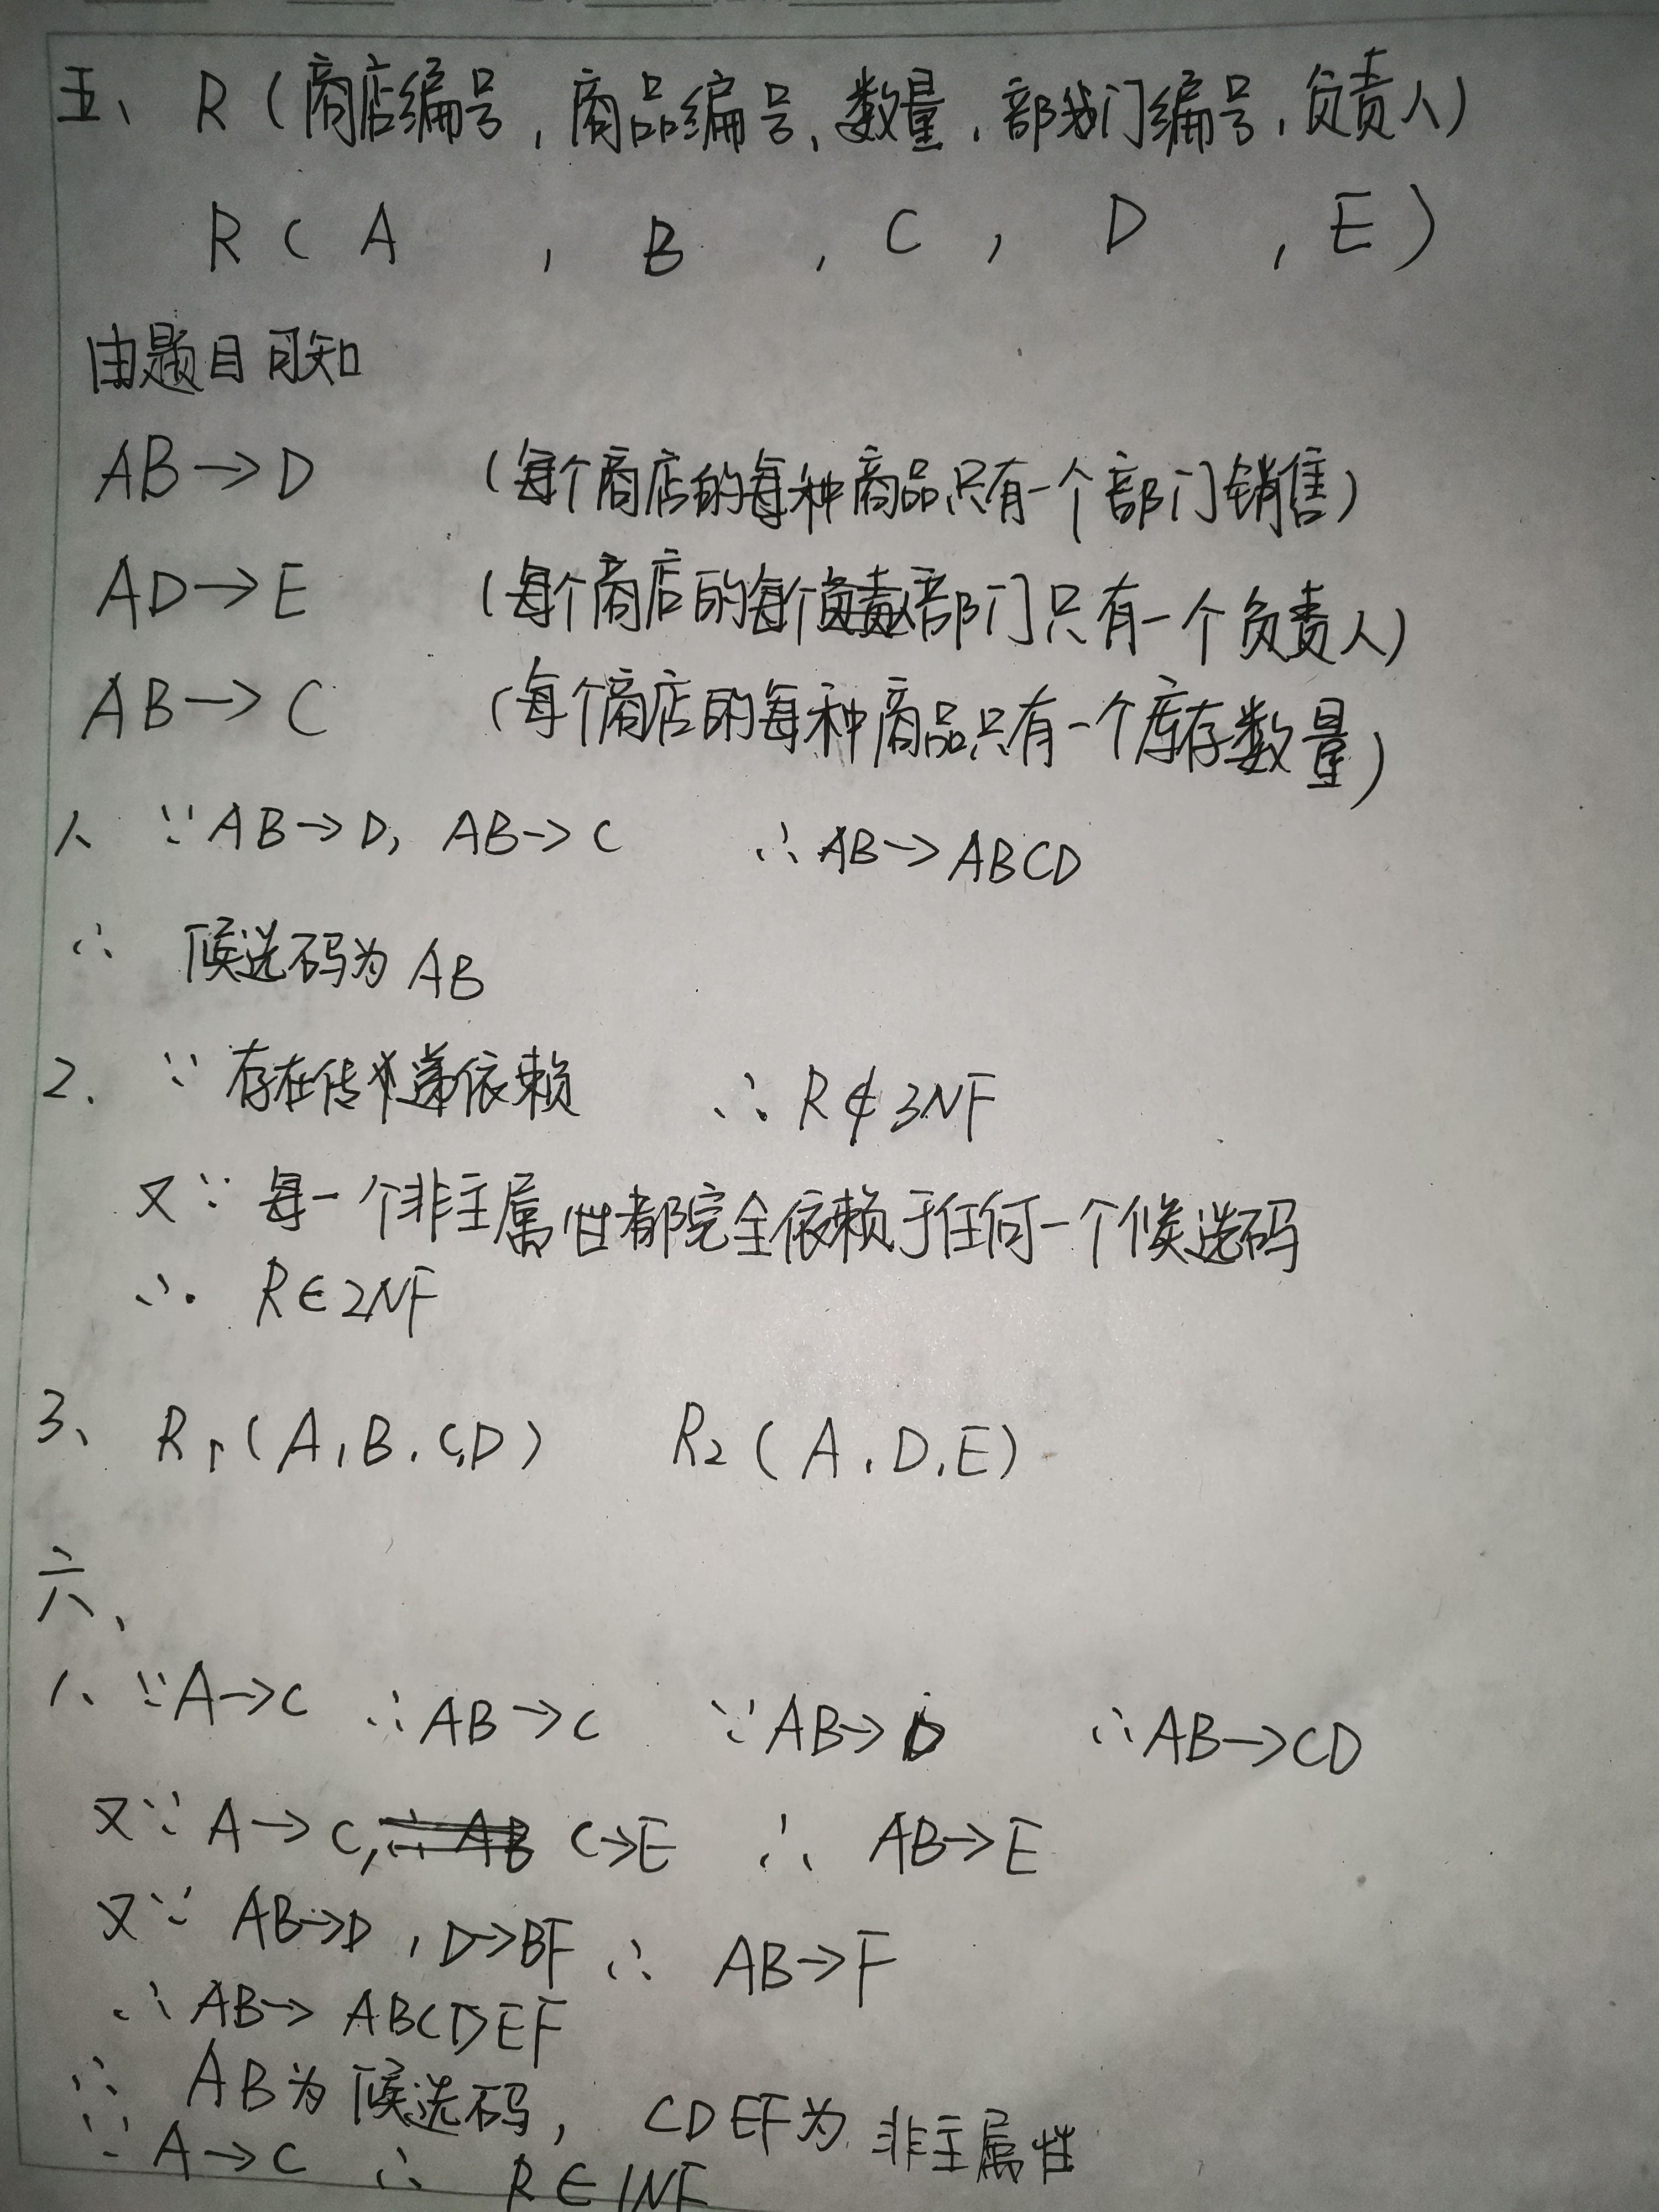 五、 R(商店编号,商品编号,数量,部门编号,负责人)
R( A , B , C , D , E )
由题目可知
AB→D (每个商店的每种商品只有一个部门销售)
AD→E (每个商店的每个部门只有一个负责人)
AB→C (每个商店的每种商品只有一个库存数量)
1、 ∵AB→D, AB→C ∴AB→ABCD
∴ 候选码为AB
2、 ∵存在传递依赖 ∴R∉3NF
又∵每一个非主属性都完全依赖于任何一个候选码
∴ R∈2NF
3、 R1(A,B,C,D) R2(A,D,E)
六、
1、 ∵A→C ∴AB→C ∵AB→D ∴AB→CD
又∵A→C, C→E ∴ AB→E
又∵ AB→D,D→BF ∴ AB→F
∴AB→ABCDEF
∴ AB为候选码, CDEF为非主属性
∵A→C ∴ R∈1NF